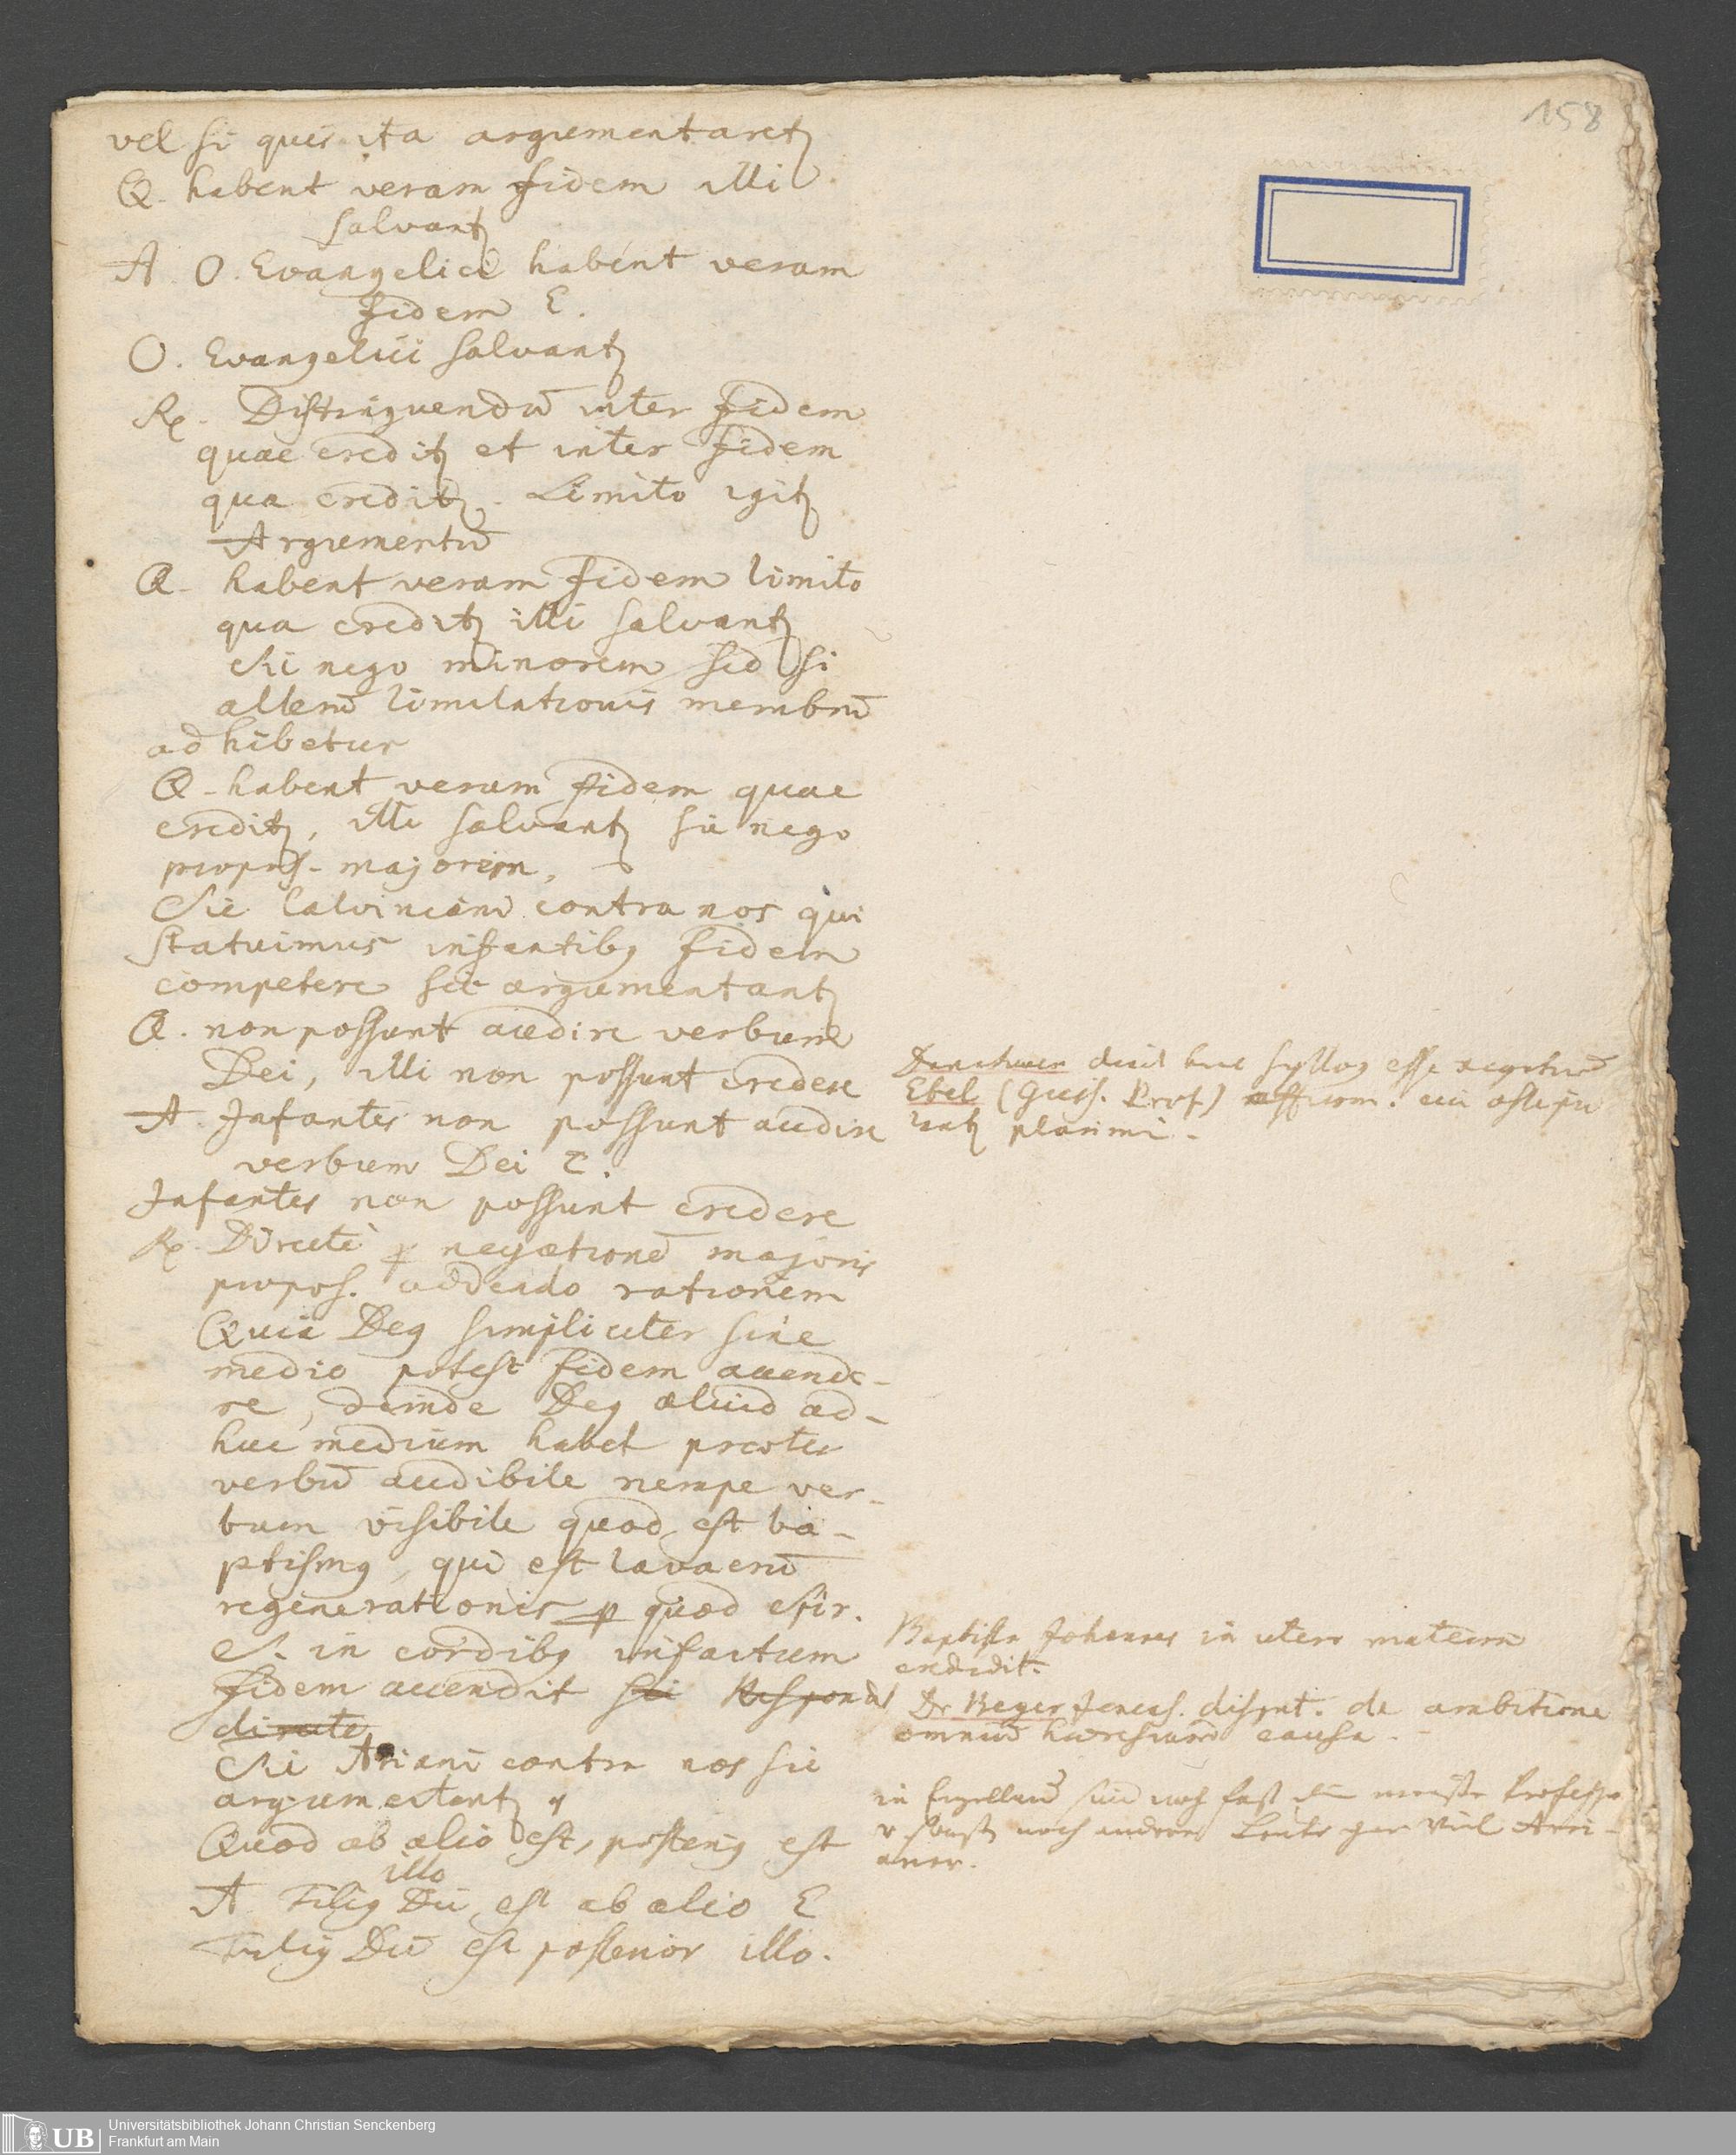 158
vel si quis ita argumentaretꝫ
Q. habent veram fidem illi
salvantꝫ
A O. Evangelici habent veram
fidem E.
O. Evangelici salvantꝫ
Rx. Distinguendū inter fidem
quae creditꝫ et inter fidem
qua creditꝫ. Limito igitꝫ
Argumentū
Q. habent veram fidem limito
qua creditꝫ illi salvantꝫ
Sic nego minorem sed si
alterū limitationis membrū
adhibetur
Q. habent veram fidem quae
creditꝫ, illi salvantꝫ sic nego
propos. majorem,
Sic Calviniani contra nos qui
statuimus infantibꝯ fidem
competere sic argumentantꝫ
Q. non possunt audire verbum
Dei, illi non possunt credere
A. Infantes non possunt audire
verbum Dei E.
Infantes non possunt credere
Rx. Directè ꝑ negationē majoris
propos. addendo rationem
Quia Deꝯ simpliciter sine
medio potest fidem accende-
re, deinde Deꝯ aliud ad-
huc medium habet praeter
verbū audibile nempe ver-
bum visibile quod est ba-
ptismꝯ, qui est lavacrū
regenerationis ꝑ quod spir.
S. in cordibꝯ infantum
fidem accendit sci Respond
directe
Sic Ariani contra nos sic
argumentantꝫ
Quod ab alio est, posteriꝯ est
illo
A Filiꝯ Dei est ab alio E
Filiꝯ Dei est posterior illo.
dicit huc syllog esse negativū
Ebel (Giess. Prof.) affirm. cui astipu
lantꝫ plurimi.
Baptista Johannes in utero materno
credidit.
Dr Beyer Jenens. disput. de ambitione
omniū haeresium causa.
in Engelland sind noch fast die meiste Professo
noch andere Leute gar viel Arri-
aner.
UB Universitätsbibliothek Johann Christian Senckenberg
Frankfurt am Main